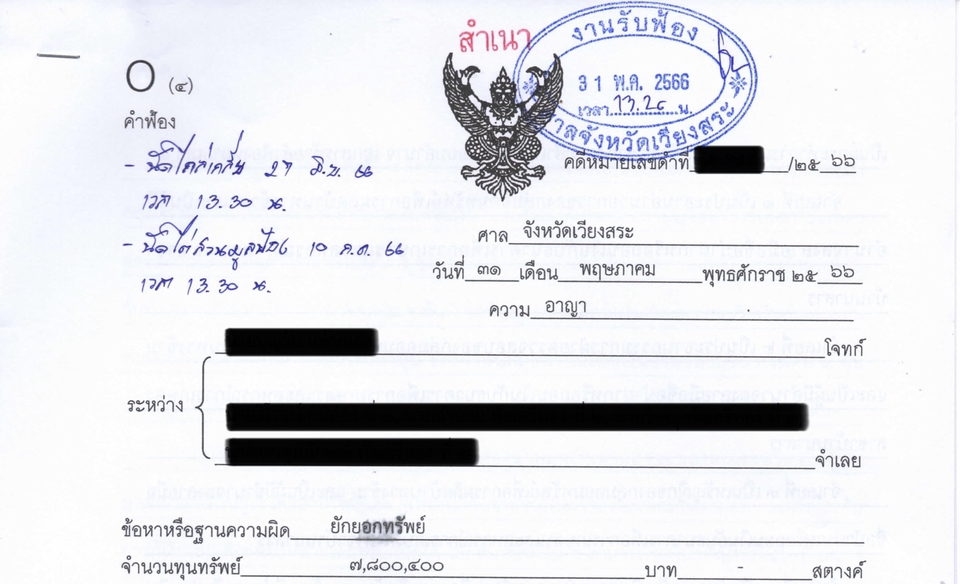 สำเนา
งานรับฟ้อง
31 พ.ค. 2566
เวลา 13.20 น.
ศาลจังหวัดเวียงสระ
O (๔)
คำฟ้อง
คดีหมายเลขดำที่ /๒๕ ๖๖
- นัดไกล่เกลี่ย 27 มิ.ย. 66
เวลา 13.30 น.
ศาล จังหวัดเวียงสระ
- นัดไต่สวนมูลฟ้อง 10 ก.ค. 66
เวลา 13.30 น.
วันที่ ๓๑ เดือน พฤษภาคม พุทธศักราช ๒๕ ๖๖
ความ อาญา
โจทก์
ระหว่าง
จำเลย
ข้อหาหรือฐานความผิด ยักยอกทรัพย์
จำนวนทุนทรัพย์ ๗,๘๐๐,๔๐๐ บาท - สตางค์